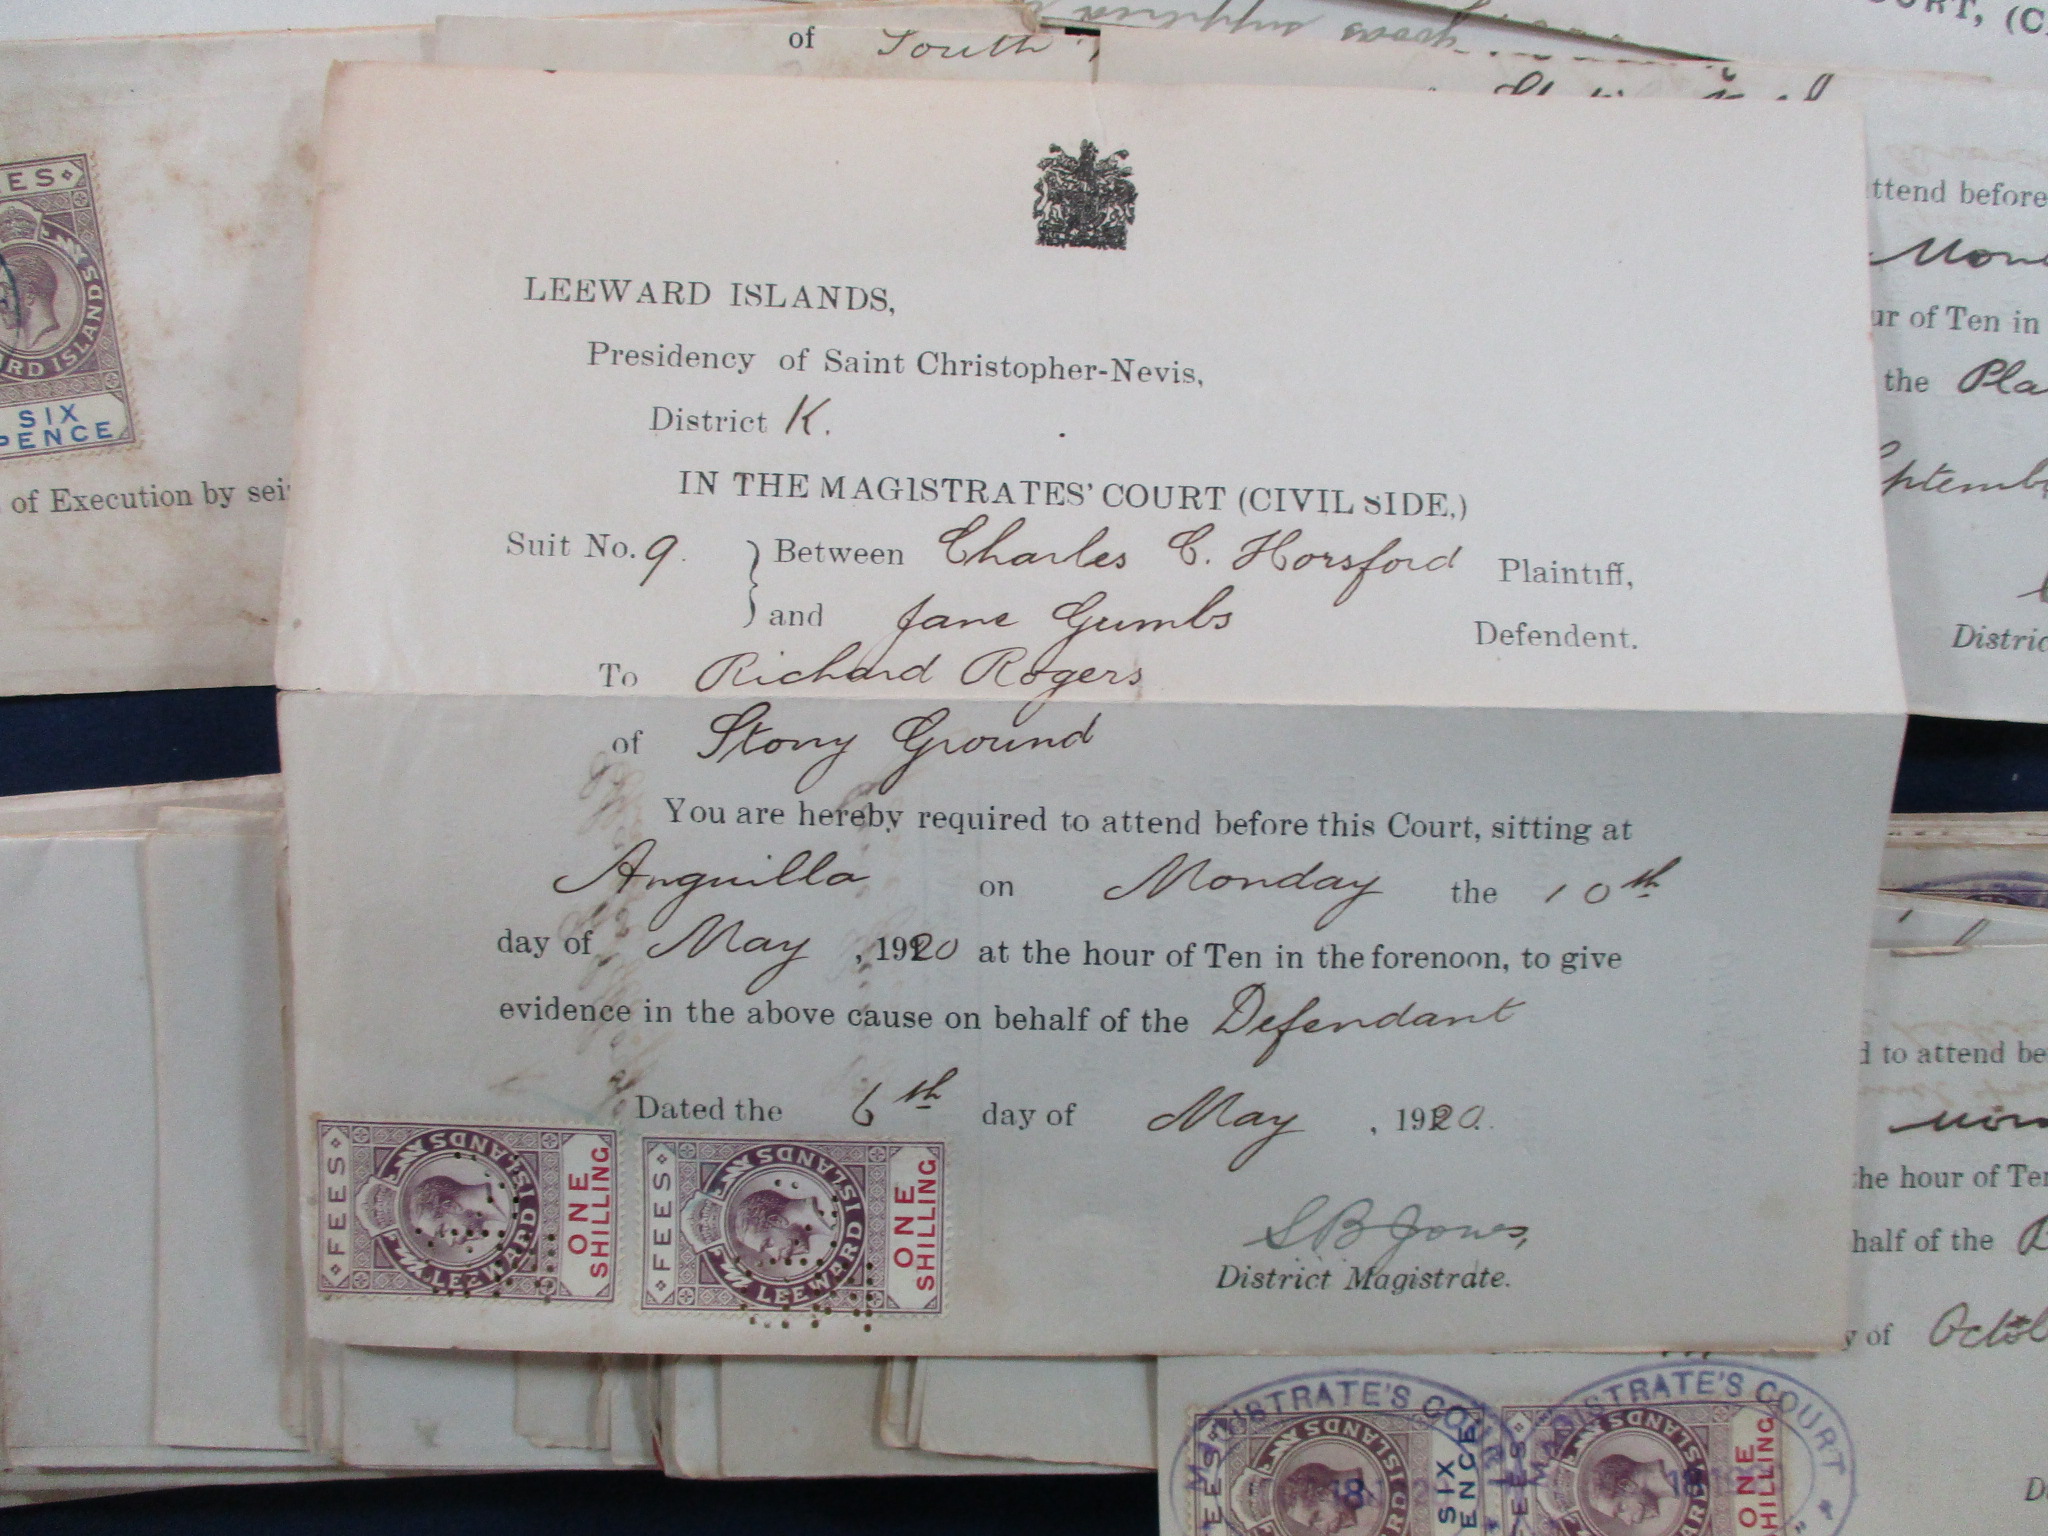 of South
COURT, (C
LEEWARD ISLANDS,
Presidency of Saint Christopher-Nevis,
District K.
IN THE MAGISTRATES' COURT (CIVIL SIDE,)
Suit No. 9. } Between Charles C. Horsford Plaintiff,
and Jane Gumbs Defendent.
To Richard Rogers
of Stony Ground
You are hereby required to attend before this Court, sitting at
Anguilla on Monday the 10th
day of May, 1920 at the hour of Ten in the forenoon, to give
evidence in the above cause on behalf of the Defendant
Dated the 6th day of May, 1920.
S B Jones,
District Magistrate.
FEES
LEEWARD ISLANDS
ONE
SHILLING
FEES
LEEWARD ISLANDS
ONE
SHILLING
EES
RD ISLANDS
SIX
PENCE
of Execution by sei
ttend before
Mon
ur of Ten in
the Pla
ptemb
Distric
d to attend be
the hour of Ten
half of the
y of Octob
MAGISTRATE'S COURT
ISLANDS
SIX
ENCE
MAGISTRATE'S COURT
ISLANDS
ONE
SHILLING